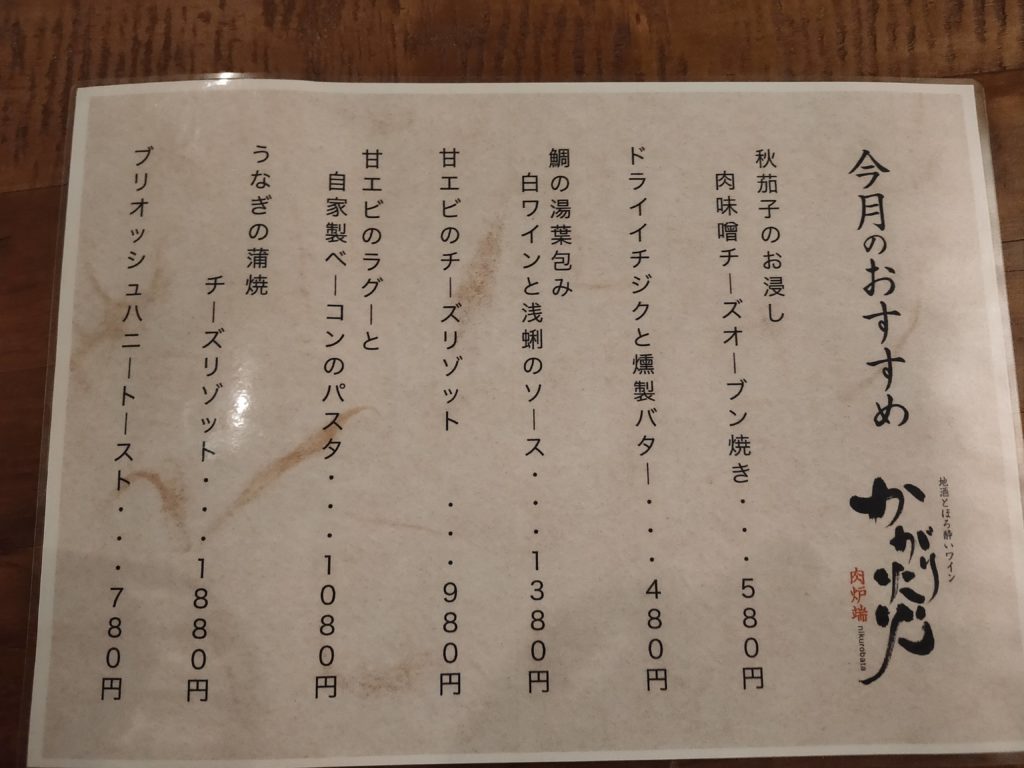 今月のおすすめ
地酒とほろ酔いワイン
かがりび
肉炉端
nikurobata
秋茄子のお浸し
肉味噌チーズオーブン焼き・・・580円
ドライイチジクと燻製バター・・・480円
鯛の湯葉包み
白ワインと浅蜊のソース・・・1380円
甘エビのチーズリゾット ・・・980円
甘エビのラグーと
自家製ベーコンのパスタ・・・1080円
うなぎの蒲焼
チーズリゾット・・・1880円
ブリオッシュハニートースト・・・780円